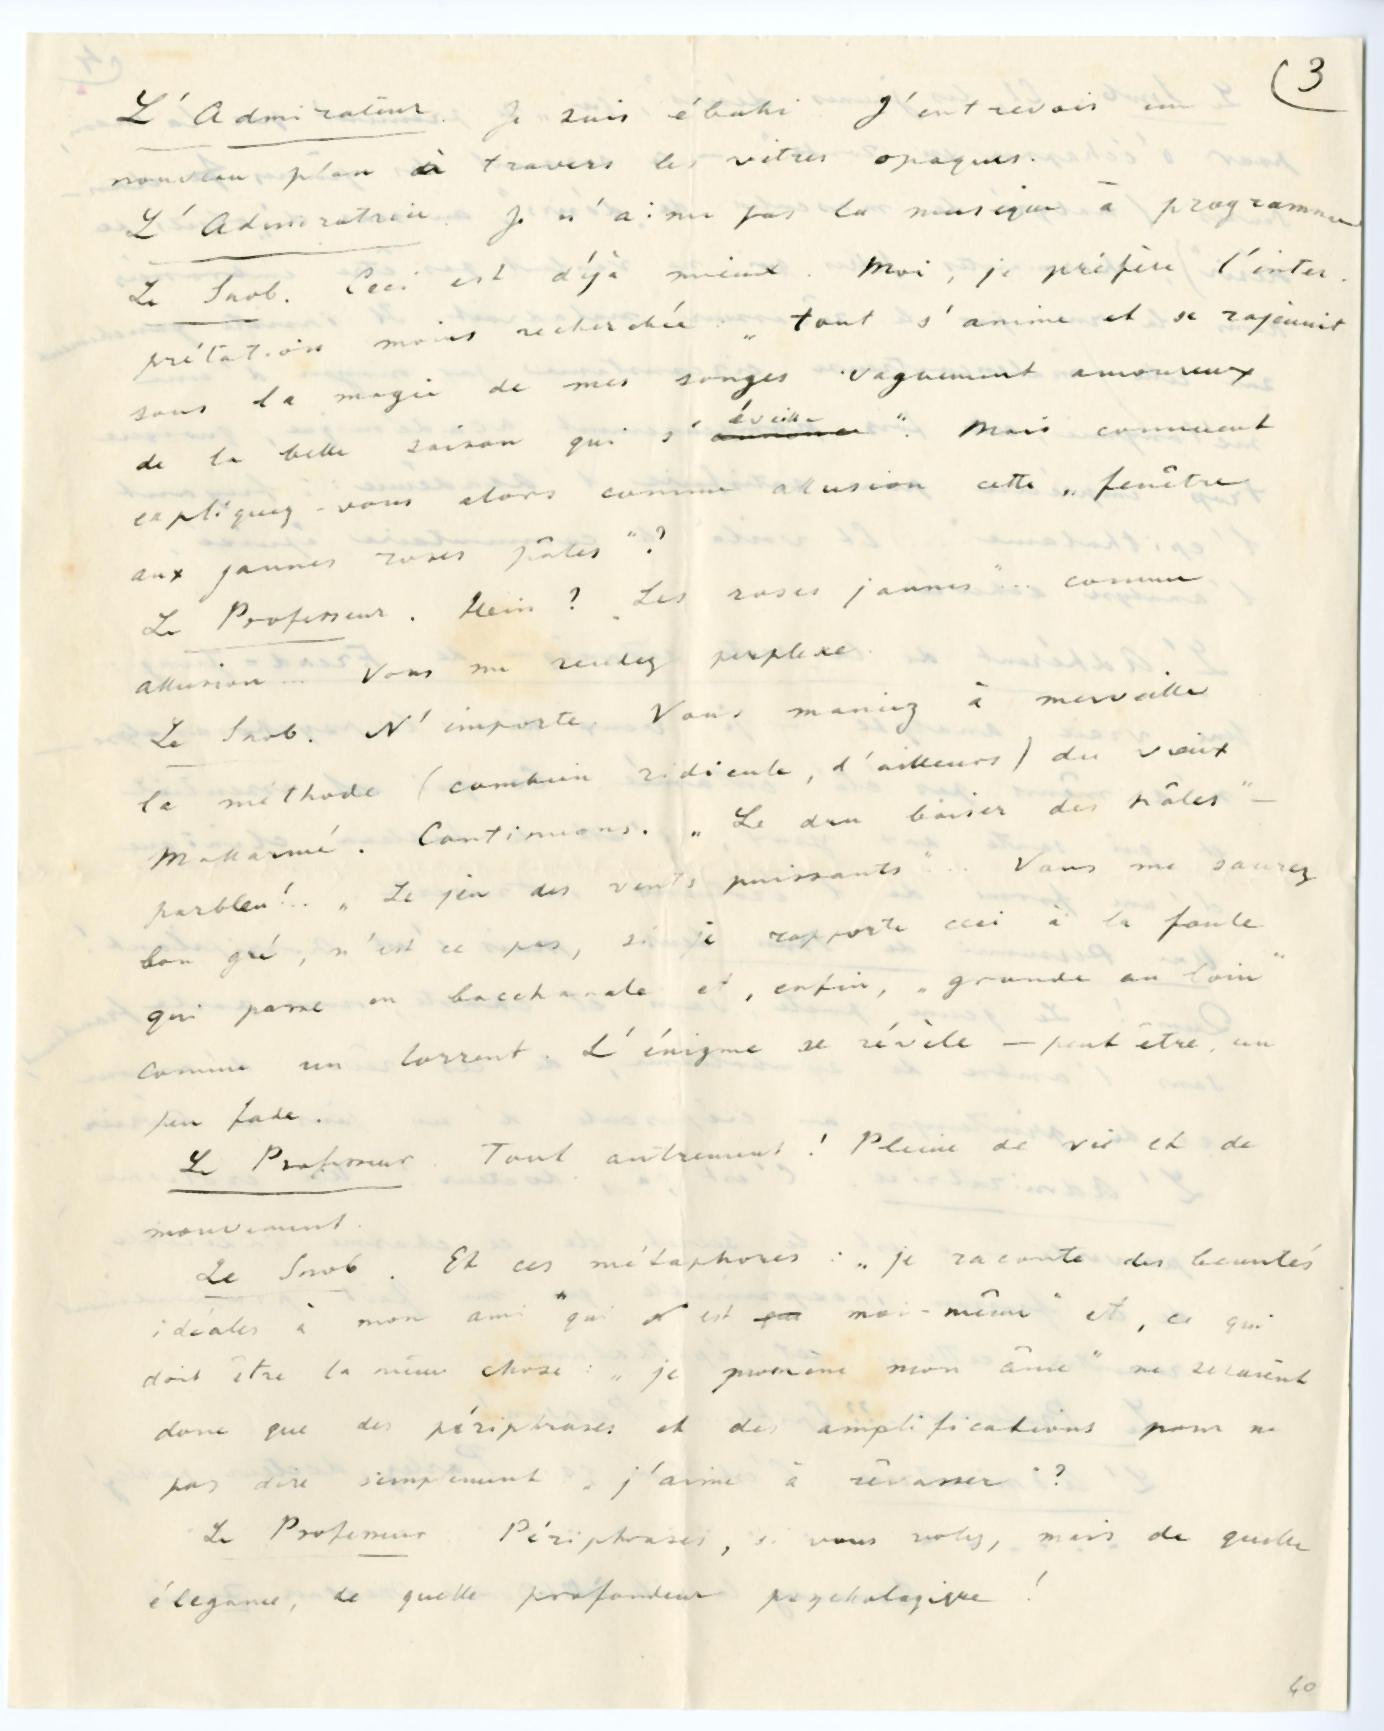 3
L'Admirateur. Je suis ébahi. J'entrevois un
nouveau plan à travers les vitres opaques.
L'Admiratrice. Je n'aime pas la musique à programme
Le Snob. Ceci est déjà mieux. Moi, je préfère l'inter-
prétation moins recherchée : „tout s'anime et se rajeunit
sous la magie de mes songes vaguement amoureux
de la belle saison qui s'éveille". Mais comment
expliquez-vous alors comme allusion cette „fenêtre
aux jaunes roses pâles"?
Le Professeur. Hein ? „Les roses jaunes"... comme
allusion... Vous me rendez perplexe.
Le Snob. N'importe. Vous maniez à merveille
la méthode (combien ridicule, d'ailleurs) du vieux
Mallarmé. Continuons. „Le dru baiser des hâles" –
parbleu!.. „Le jeu des vents puissants"... Vous me saurez
bon gré, n'est ce pas, si je rapporte ceci à la foule
qui passe en bacchanale et, enfin, „gronde au loin"
comme un torrent. L'énigme se révèle – peut être, un
peu fade.
Le Professeur. Tout autrement ! Pleine de vie et de
mouvement.
Le Snob. Et ces métaphores : „je raconte des beautés
idéales à mon ami "qui est moi-même" et, ce qui
doit être la même chose : „je promène mon âme" ne seraient
donc que des périphrases et des amplifications pour ne
pas dire simplement „j'aime à rêvasser"?
Le Professeur. Périphrases, si vous voulez, mais de quelle
élégance, de quelle profondeur psychologique !
40